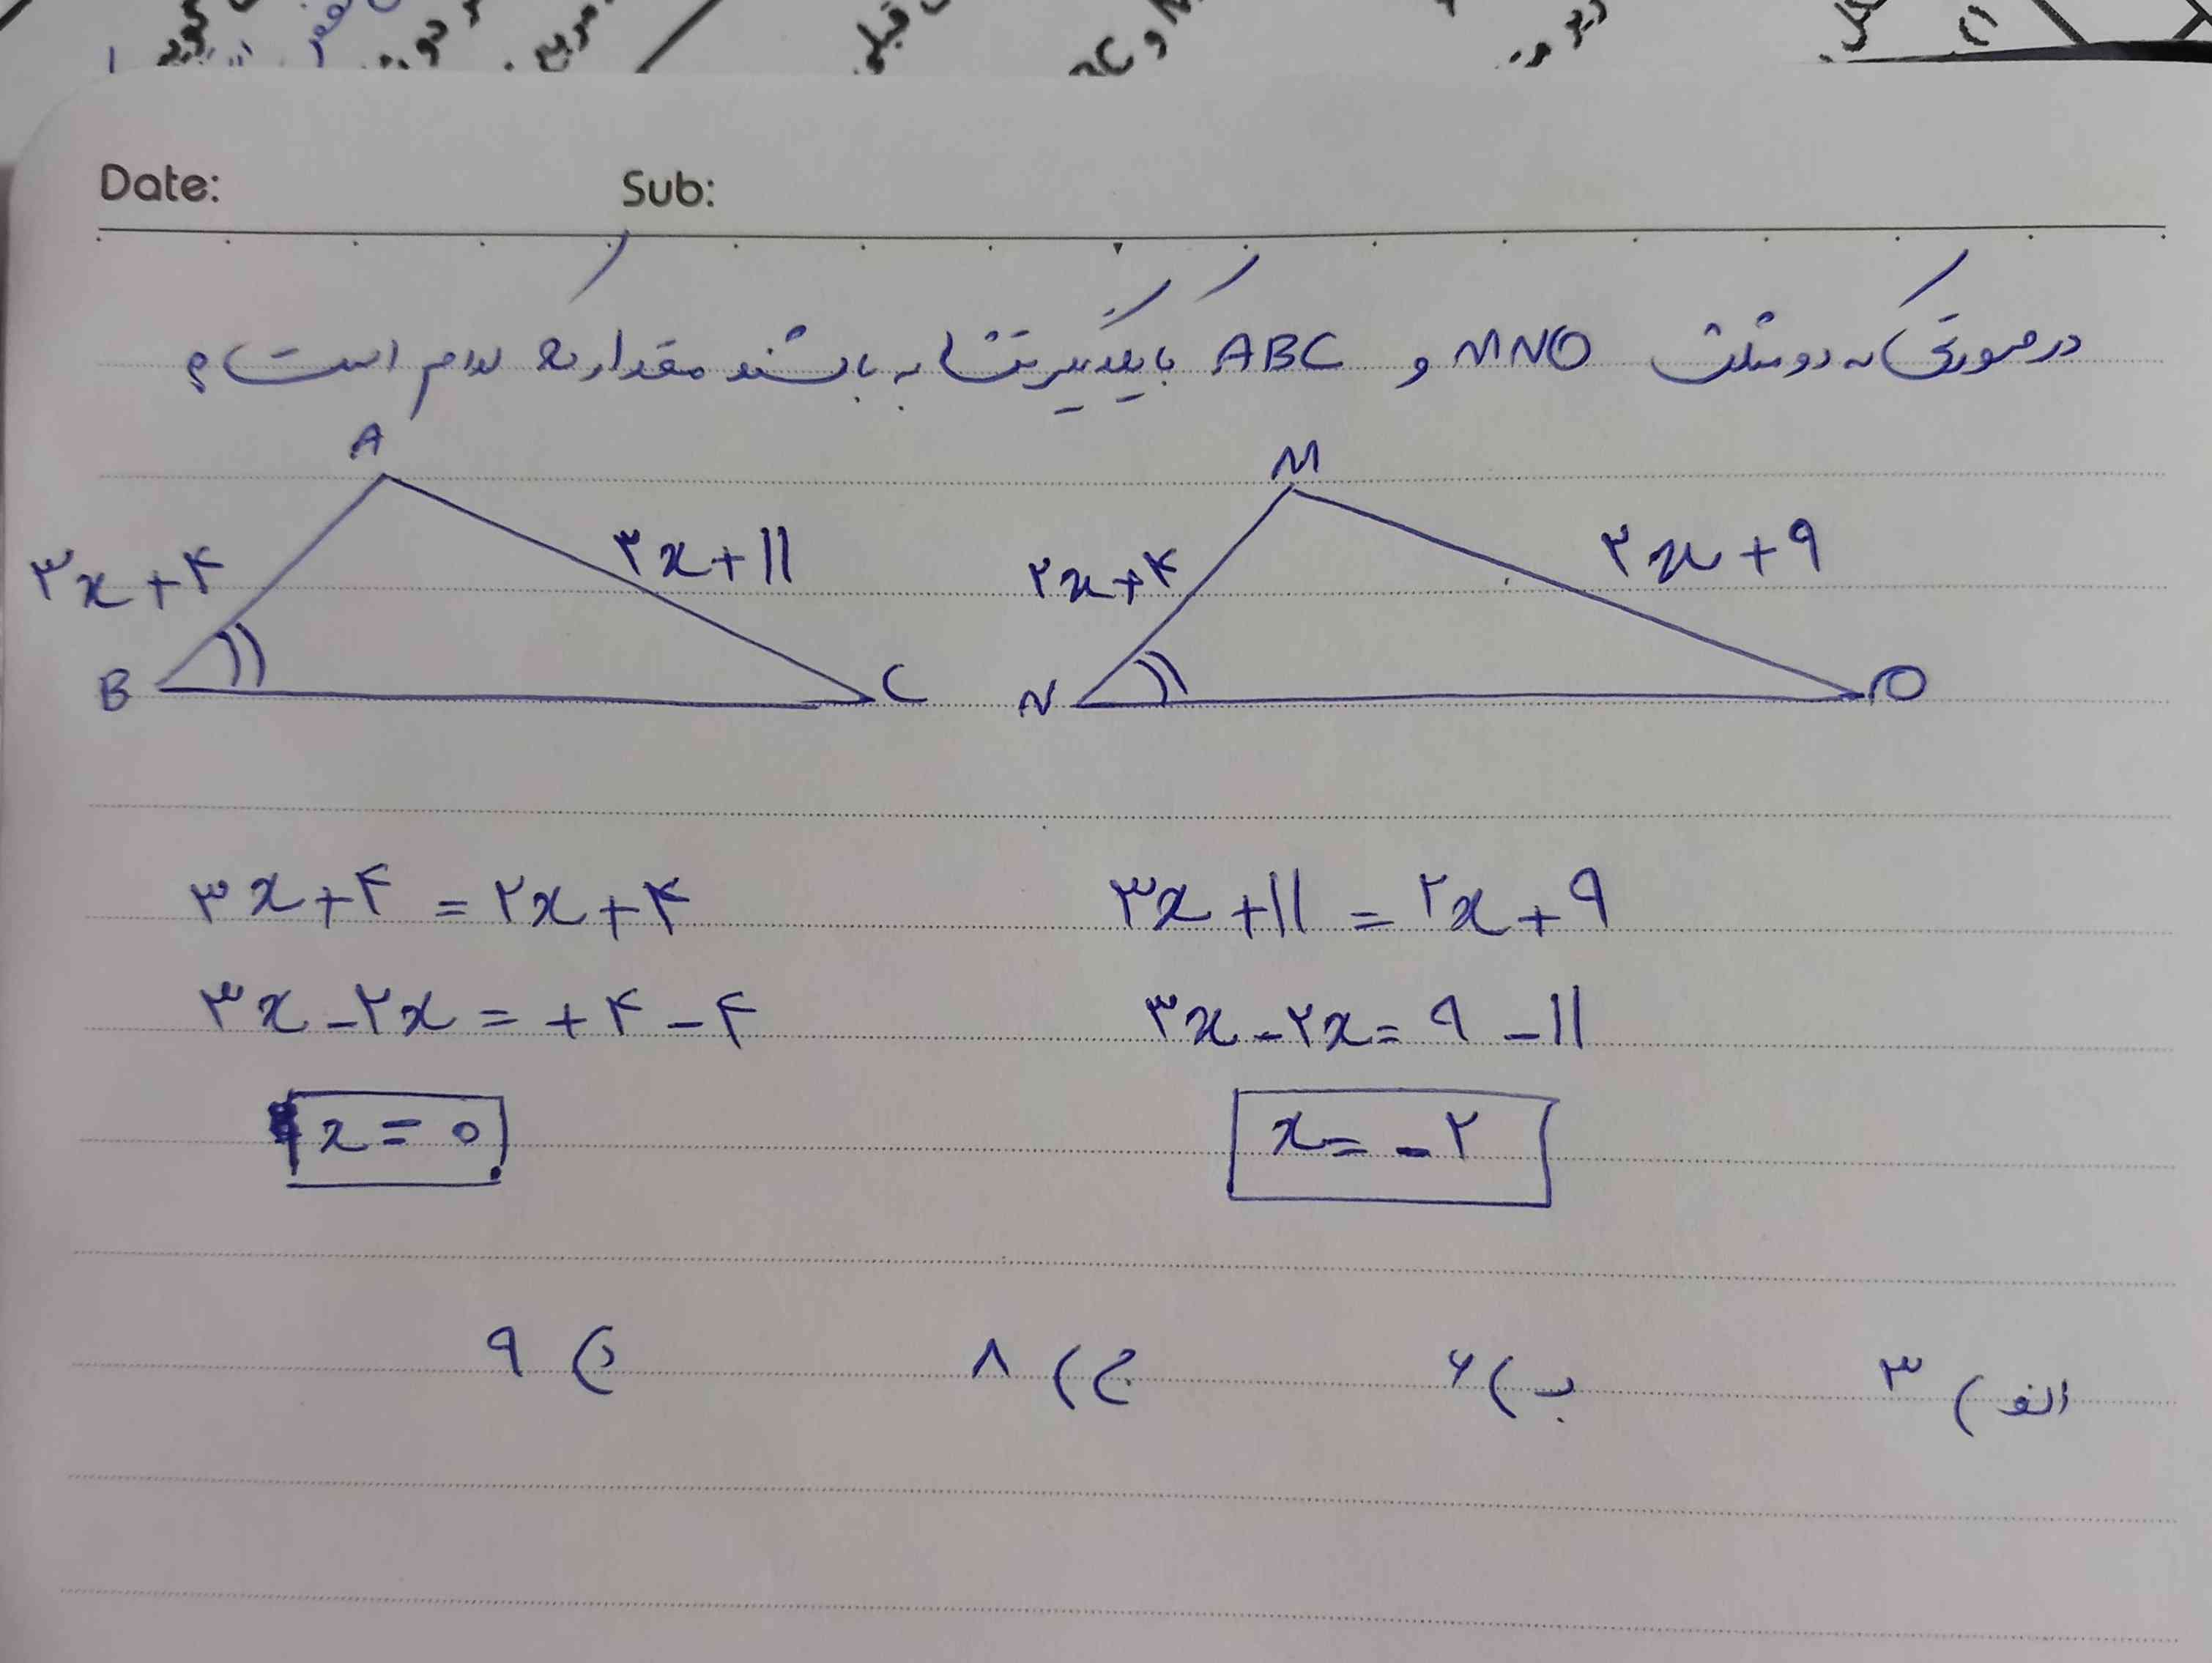 Date: Sub:
در صورتی که دو مثلث MNO و ABC با یکدیگر متشابه باشند مقدار x کدام است؟
A M
۳x+۴ ۳x+۱۱ ۲x+۴ ۲x+۹
B C N O
۳x+۴ = ۲x+۴ ۳x+۱۱ = ۲x+۹
۳x-۲x = +۴-۴ ۳x-۲x = ۹-۱۱
x = ۰ x = -۲
الف) ۳ ب) ۶ ج) ۸ د) ۹